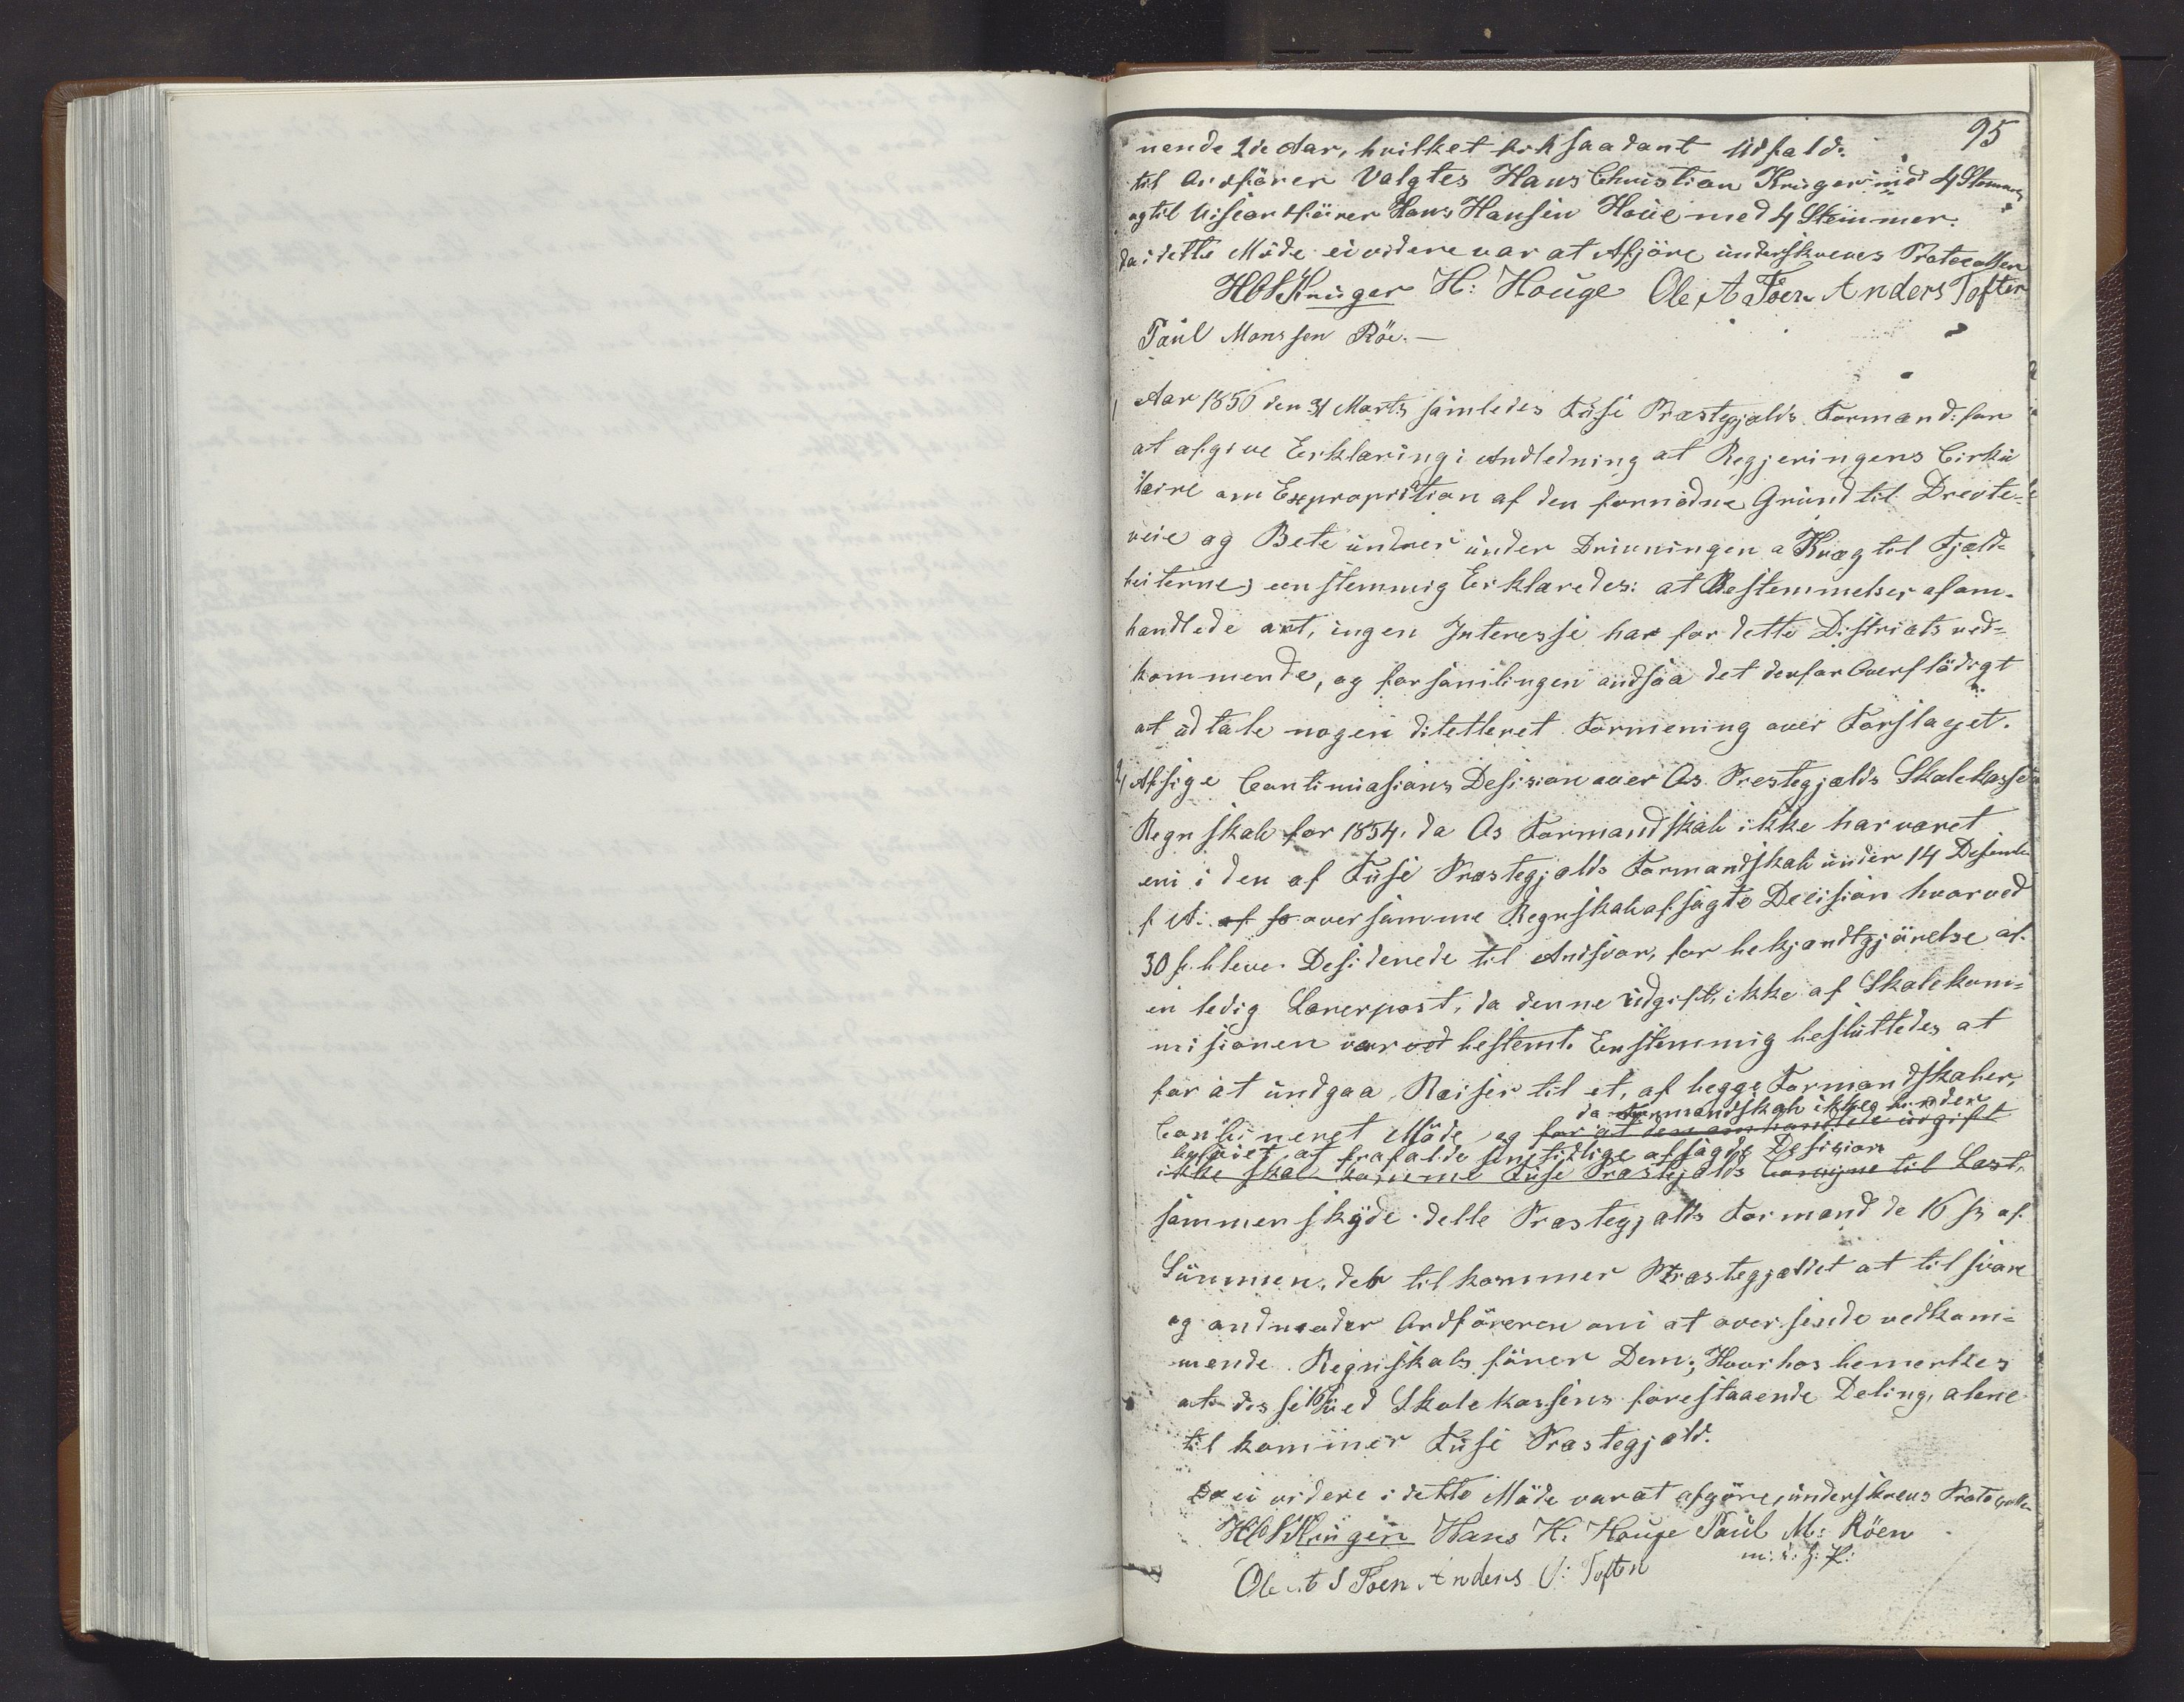 95
nende 2de Aar, hvilket fik saadant Udfald:
til Ordförer Valgtes Hans Christian Krüger med 4 Stemmer
og til Viseordförer Hans Hansen Houe med 4 Stemmer.
da i dette Möde ei videre var at Afjöre underskreves Protocollen
HCS Krüger H: Houge Ole A Toen Anders Toften
Paul Monssen Röe. —
1/ Aar 1856 den 31 Marts samledes Fuse Præstegjelds Formænd: for
at afgive Erklæring i Andledning at Regjeringens Cirku
læire om Expropriation af den fornödne Grund til Drevte-
veie og Bete under under Drivningen a Kvæg til Fjeld-
beiterne; eenstemmig Erklæredes: at Bestemmelser af om-
handlede art, ingen Interesse har for dette Districts ved-
kommende, og forsamlingen andsaa det derfor Overflödigt
at udtale nogen ditelleret Formening over Forslaget.
2/ Afsige Contimiasions Desision over Os Prestegjælds Skolekasse
Regnskab for 1854. da Os Formandskab ikke har været
eni i den af Fuse Præstegjælds Formandskab under 14 Desemb
f A: af fo over samme Regnskab afsagte Decision hvorved
30 s. bleve Desiderede til Andsvar, for bekjendtgjörelse af
en ledig Lærerpost, da denne udgift, ikke af Skolekom-
misionen var ved bestemt. Enstemmig besluttedes at
for at undgaa Reiser til et, af begge Formandskaber,
da Formandskab ikke finder
Conbineret Möde og for at den omhandlede udgift
beföiet at frafalde sin tidlige afsagde Desision
ikke skal komme Fuse Præstejælds Comune til Last,
sammenskyde dette Præstegjælds Formænd de 16 s af
Summen, der tilkommer Præstegjældet at tilsvare
og andmoder Ordföreren om at oversende vedkom-
mende Regnskabsförer Dem; Hvorhos bemerkes
at disse 16 s ved Skolekassens forestaaende Deling, alene
tilkommer Fuse Præstegjæld.
Da ei videre i dette Möde var at afgöre, underskrevs Protocollen
HCS Krüger Hans H. Houge Paul M: Röen
m: i: h: P:
Ole A S Toen Anders O: Toften